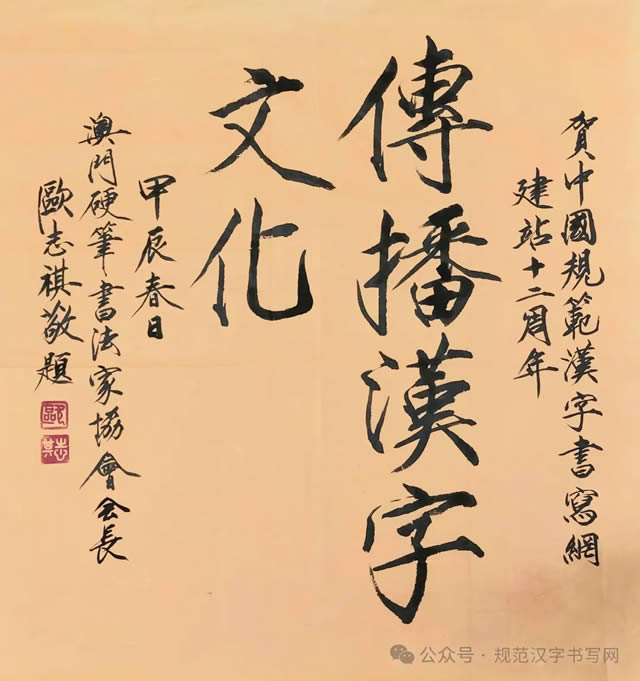 賀中國規範漢字書寫網
建站十二周年
傳播漢字
文化
甲辰春日
澳門硬筆書法家協會会長
歐志祺敬題
歐
志其
公众号·规范汉字书写网